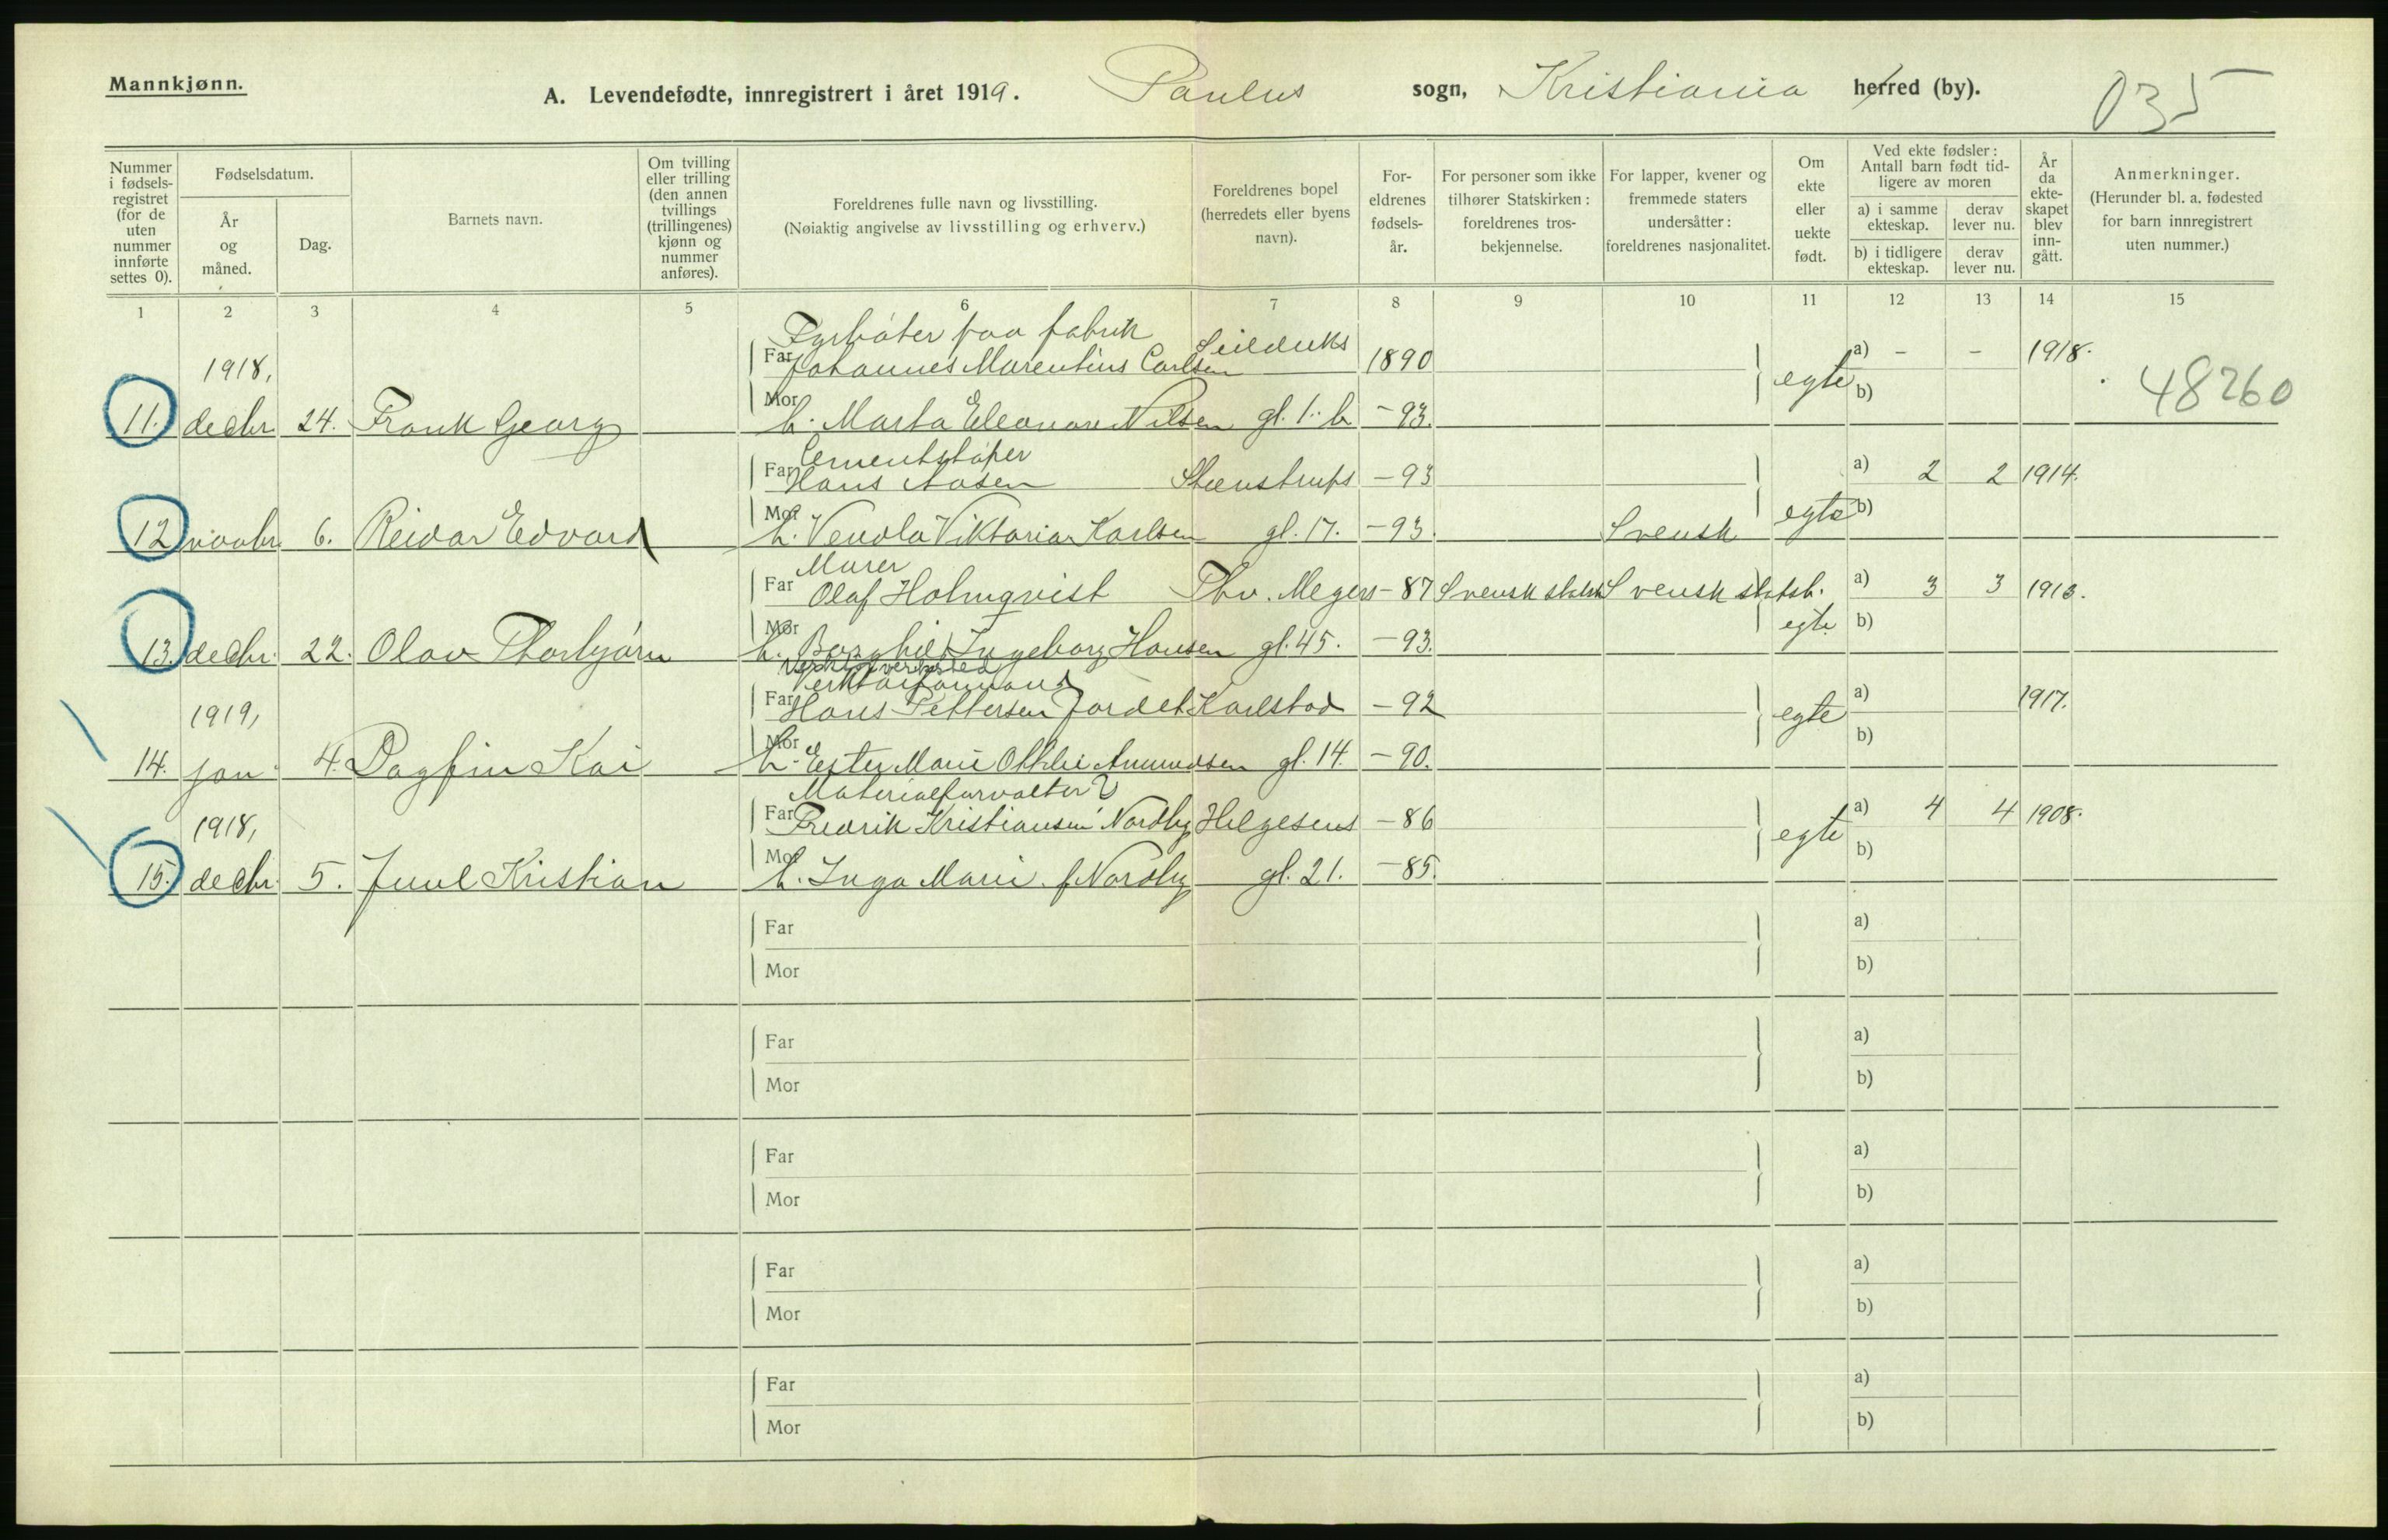 Mannkjønn.
A. Levendefødte, innregistrert i året 1919. Paulus sogn, Kristiania herred (by). 035
Nummer i fødselsregistret (for de uten nummer innførte settes 0).
Fødselsdatum.
År og måned.
Dag.
Barnets navn.
Om tvilling eller trilling (den annen tvillings (trillingenes) kjønn og nummer anføres).
Foreldrenes fulle navn og livsstilling.
(Nøiaktig angivelse av livsstilling og erhverv.)
Foreldrenes bopel (herredets eller byens navn).
Foreldrenes fødselsår.
For personer som ikke tilhører Statskirken: foreldrenes trosbekjennelse.
For lapper, kvener og fremmede staters undersåtter: foreldrenes nasjonalitet.
Om ekte eller uekte født.
Ved ekte fødsler: Antall barn født tidligere av moren
a) i samme ekteskap. derav lever nu.
b) i tidligere ekteskap. derav lever nu.
År da ekteskapet blev inngått.
Anmerkninger.
(Herunder bl. a. fødested for barn innregistrert uten nummer.)
1 2 3 4 5 6 7 8 9 10 11 12 13 14 15
Fyrbøter paa fabrik
1918, Far Johannes Marentius Carlsen Seilduks 1890 egte a) - - 1918.
11. decbr 24. Frank Georg Mor h. Marta Eleonore Nilsen gl. 1. b -93. b) 48260
Cementstøper
Far Hans Aasen Steenstrups -93 egte a) 2 2 1914.
12 novbr. 6. Reidar Edvard Mor h. Vendla Viktoria Karlsen gl. 17. -93. Svensk b)
Murer
Far Olaf Holmqvist Thv. Meyers -87 Svensk statsk Svensk statsb. a) 3 3 1913.
13. decbr. 22. Olav Thorbjørn Mor h. Borghild Ingeborg Hansen gl. 45. -93. egte b)
1919, Far Hans Pettersen Jordet Karlstad -92 egte a) 1917.
14. jan. 4. Dagfin Kai Mor h. Ester Marie Othlie Amundsen gl. 14. -90. b)
Materialforvalter
1918, Far Fredrik Kristiansen Nordby Helgesens -86 egte a) 4 4 1908.
15. decbr. 5. Juul Kristian Mor h. Inga Marie f. Nordby gl. 21. -85. b)
Far a)
Mor b)
Far a)
Mor b)
Far a)
Mor b)
Far a)
Mor b)
Far a)
Mor b)